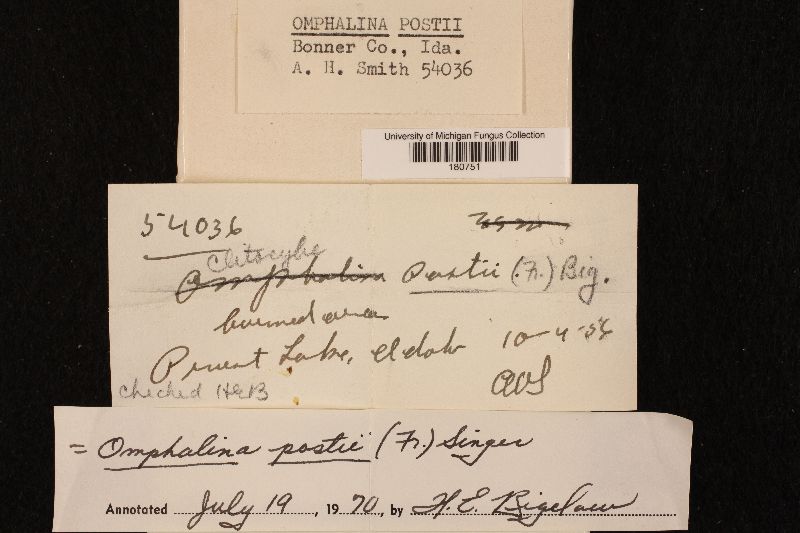 OMPHALINA POSTII
Bonner Co., Ida.
A. H. Smith 54036
University of Michigan Fungus Collection
180751
54036
Clitocybe
Omphalina Postii (Fr.) Big.
burned area
Priest Lake, Idaho 10-4-56
AHS
checked HEB
= Omphalina postii (Fr.) Singer
Annotated July 19, 1970, by H. E. Bigelow